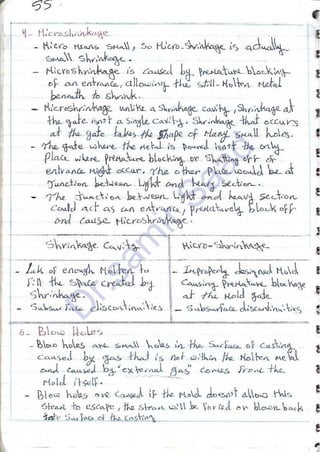 55
4- Microshrinkage
- Micro Means Small, So Micro-Shrinkage is actually
Small Shrinkage.
- Microshrinkage is Caused by Premature blocking
of an entrance, allowing the still-Molten Metal
beneath to shrink.
- Microshrinkage unlike a Shrinkage cavity, Shrinkage at
the gate isn't a Single Cavity. Shrinkage that occurs
at the gate takes the Shape of Many Small holes.
- The gate where the metal is poured isn't the only
Place where Premature blocking, or Shutting off of
entrance Might occur. The other Place would be at
Junction between Light and heavy section.
- The Junction between Light and heavy section
Could act as an entrance, Prematurely block off
and Cause Microshrinkage.
Shrinkage Cavity
Micro-Shrinkage
- Lak of enough Molten to
Fill the Space Created by
Shrinkage.
- Subsurface discontinuities
- Improperly designed Mold
Causing Premature blockage
at the Mold gate
- Subsurface discontinuities
Blow Holes
- Blow holes are Small holes in the Surface of Casting
Caused by gas that is not within the Molten metal
and caused by "external gas" Comes From the
Mold itself.
- Blow holes are Caused if the Mold doesn't allows this
Steam to escape, the steam will be forced or blown back
into Surface of the Casting